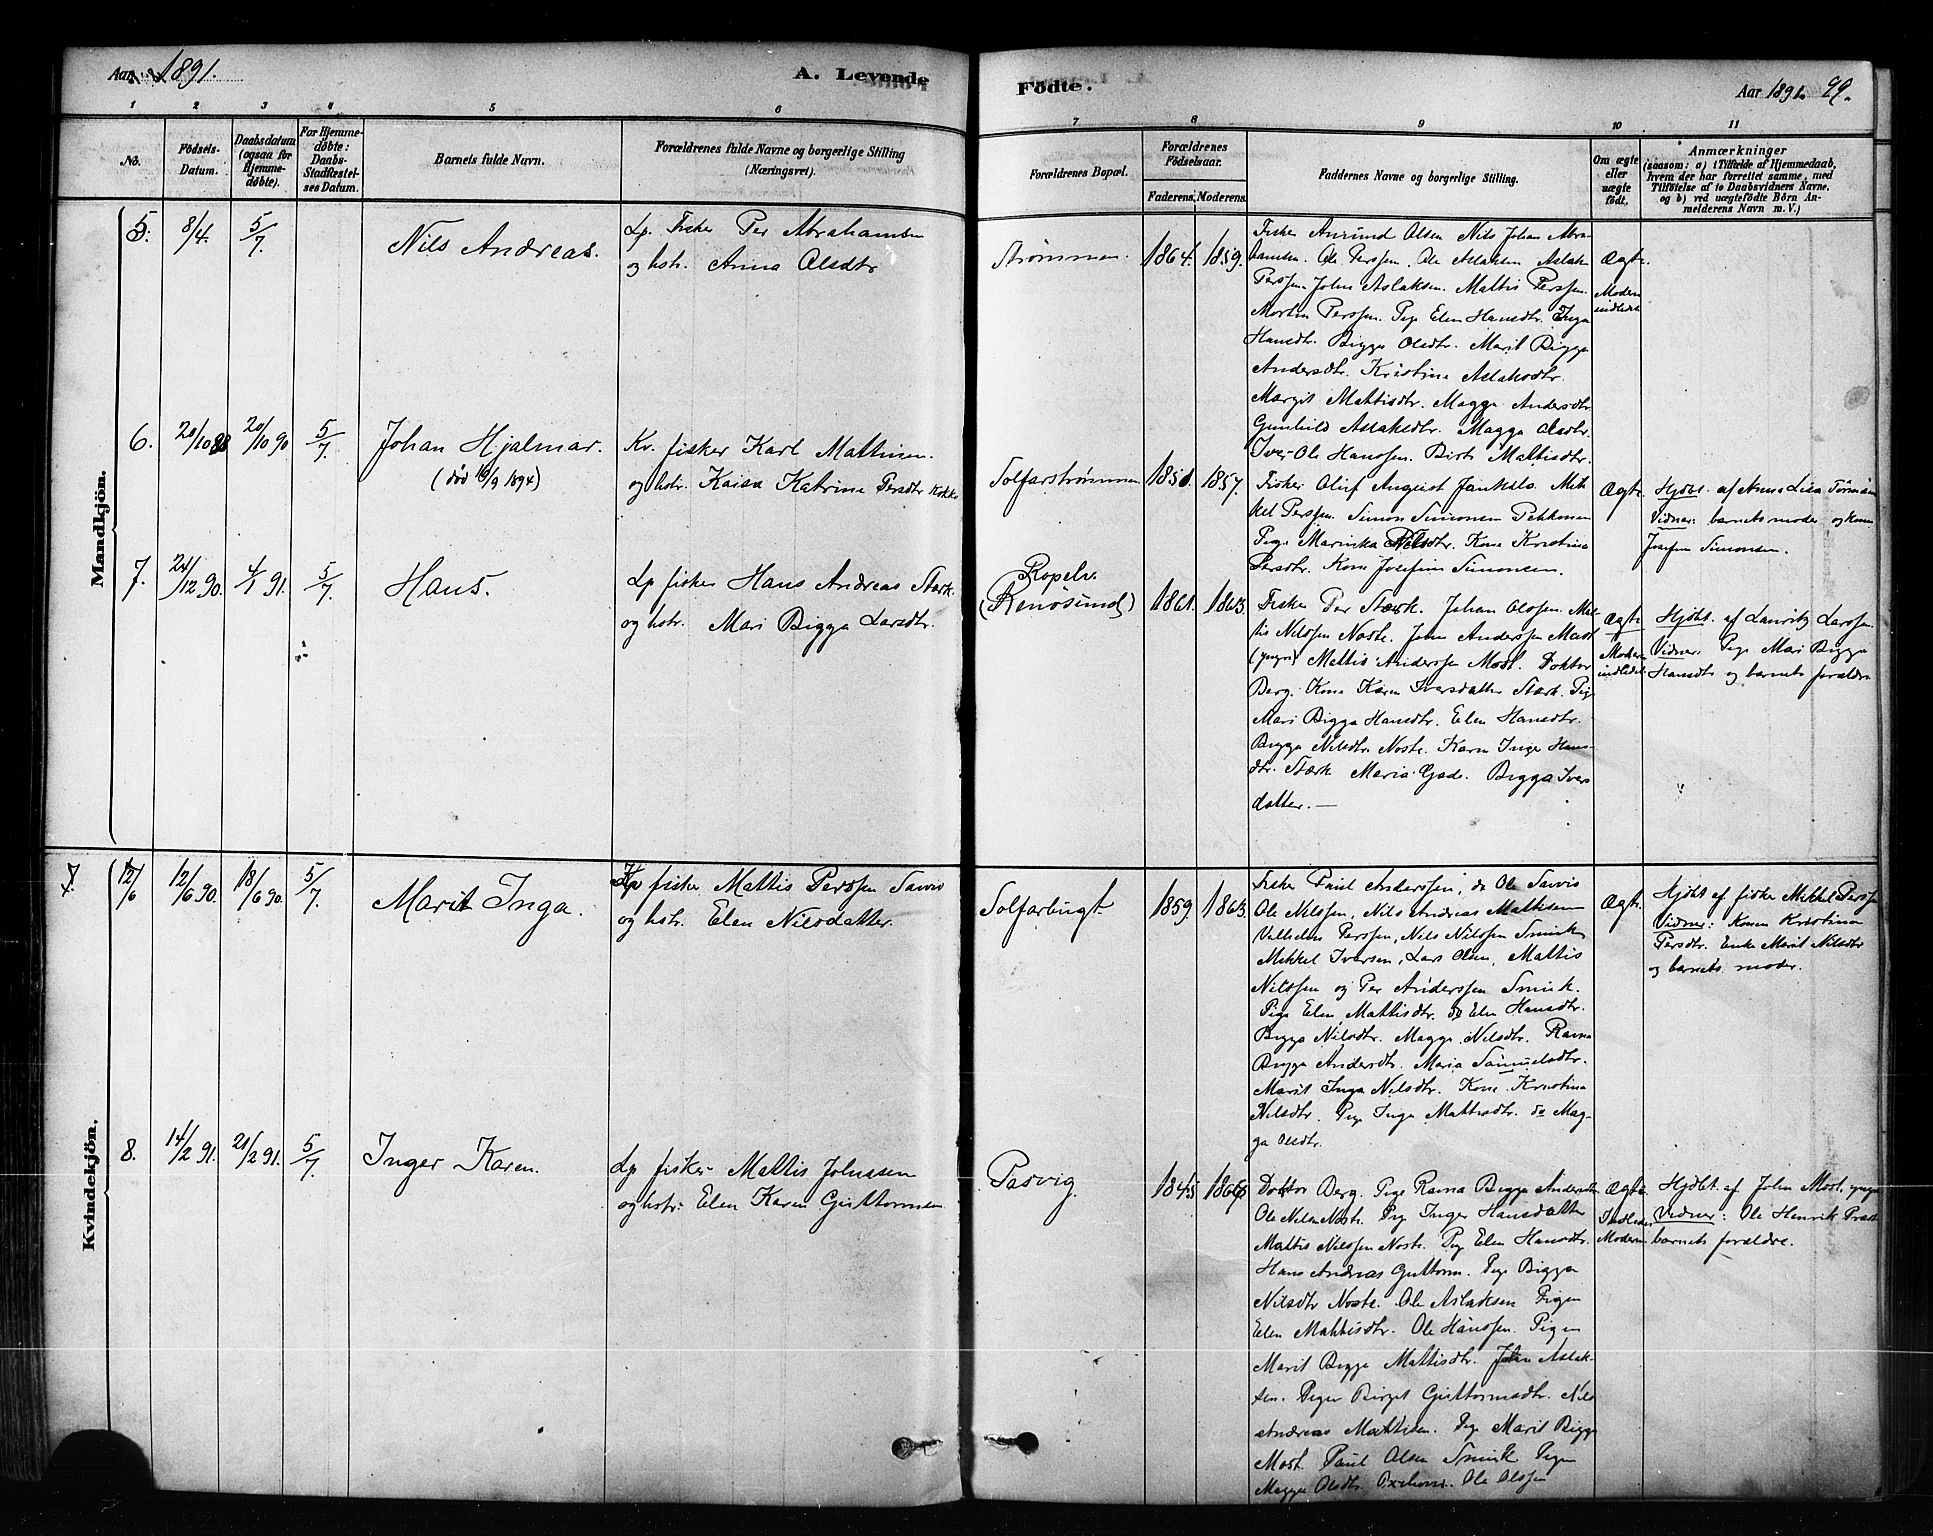 Aar 1891.
A. Levende
Födte.
Aar 1891. 99.
1 2 3 4 5 6 7 8 9 10 11
No.
Födsels-Datum.
Daabsdatum (ogsaa for Hjemme-döbte).
For Hjemme-döbte: Daabs-Stadfæstel-ses Datum.
Barnets fulde Navn.
Forældrenes fulde Navne og borgerlige Stilling
(Næringsvei).
Forældrenes Bopæl.
Forældrenes Födselsaar.
Faderens. Moderens.
Faddernes Navne og borgerlige Stilling.
Om ægte eller uægte födt.
Anmærkninger
(saasom: a) i Tilfælde af Hjemmedaab,
hvem der har forrettet samme, med
Tilföielse af to Daabsvidners Navne,
og b) ved uægtefödte Börn An-
melderens Navn m. V.)
Mandkjön.
5. 8/4. 5/7. Nils Andreas.
Lp. Fisker Per Abrahamsen
og hstr. Anna Olsdtr
Strømmen. 1864. 1859.
Fisker Olsen Nils Johan Abra-
hamsen. Ole Perssen. Ole Aslaksen Aslak
Perssen. John Aslaksen. Mattis Perssen.
Morten Perssen. Pige Elen Hansdtr. Inga
Hansdtr. Bigga Olsdtr. Marit Bigga
Andersdtr. Kristine Aslaksdtr.
Margit Mattisdtr. Magga Andersdtr
Gunhild Aslaksdtr. Magga Olsdtr.
Iver Ole Hanssen. Birte Mattisdtr.
Ægte. Moderen indledet
6. 20/10 20/10 90 5/7 Johan Hjalmar.
(død 16/9 1894)
Kv. fisker Karl Mattinen
og hstr. Kaisa Katrine Persdtr Kokko
Solfarstrømmen 1850. 1857.
Fisker Oluf August Mik-
kel Perssen. Simon Simonsen Pekkonen
Pige Marinka Nilsdtr. Kone Kristina
Persdtr. Kone Josefine Simonsen.
Ægte
Hjdbt. af Anna Lisa
Vidner: barnets moder og kone
Josefine Simonsen.
7. 24/12 90. 4/1 91. 5/7 Hans.
Lp fisker Hans Andreas Stærk.
og hstr. Mari Bigga Larsdtr.
Ropelv.
(Renøsund) 1861. 1863.
Fisker Per Stærk. Johan Olssen. Mat-
tis Nilssen Noste. John Anderssen Most
(yngre) Mattis Anderssen Most. Doktor
Berg. Kone Karen Iversdatter Stærk. Pig
Mari Bigga Hansdtr. Elen Hansdtr.
Bigga Nilsdtr. Noste. Karen Inge Hans-
dtr. Stærk Maria Gade. Bigga Ivers
datter.—
Ægte Moderen indledet
Hjdbt. af Lauritz Larssen.
Vidner: Pige Mari Bigga
Hansdtr og barnets forældre
Kvindekjön.
7. 12/6 12/6 90. 18/6 90. 5/7 Marit Inga.
Lp fisker Mattis Perssen Sarvis
og hstr. Elen Nilsdatter.
Solfarbugt. 1859. 1863.
Fisker Paul Anderssen, do Ole Sarvis
Ole Nilssen, Nils Andreas Mattisen
Vilhelm Perssen, Nils Nilssen Smuk
Mikkel Iversen, Lars Olsen, Mattis
Nilssen og Per Anderssen Smuk.
Pige Elen Mattisdtr. do Elen Hansdtr.
Bigga Nilsdtr. Magga Nilsdtr. Ravna
Bigga Andersdtr. Maria Samuelsdtr.
Marit Inga Nilsdtr. Kone Kristina
Nilsdtr. Pige Inga Mattisdtr. do Mag-
ga Olsdtr.
Ægte.
Hjdbt af fisker Mikkel Perssen
Vidner: Konen Kristina
Persdtr. Enke Marit Nilsdtr
og barnets moder.
8. 14/2 91. 21/2 91. 5/7 Inger Karen.
Lp fisker Mattis Johnssen
og hstr. Elen Karen Guttormsen
Pasvig. 1845 1866
Doktor Berg. Pige Ravna Bigga Andersdtr
Ole Nilsen Noste. Pig Inger Hansdatter
Mattis Nilssen Noste. Pig Elen Hansdtr.
Hans Andreas Guttorm. Pige Bigga
Nilsdtr Noste. Ole Aslaksen Pigen
Elen Mattisdtr. Ole Hanssen. Pigen
Marit Bigga Mattisdtr. John Aslak-
sen. Pigen Birget Guttormsdtr. Nils
Andreas Mattisen. Pige Marit Bigga
Most. Paul Olsen Smuk Pigen
Magga Olsdtr. Ole Olssen
Ægte. Indledes Moderen
Hjdbt. af John Most. yngre
Vidner: Ole Henrik
barnets forældre.